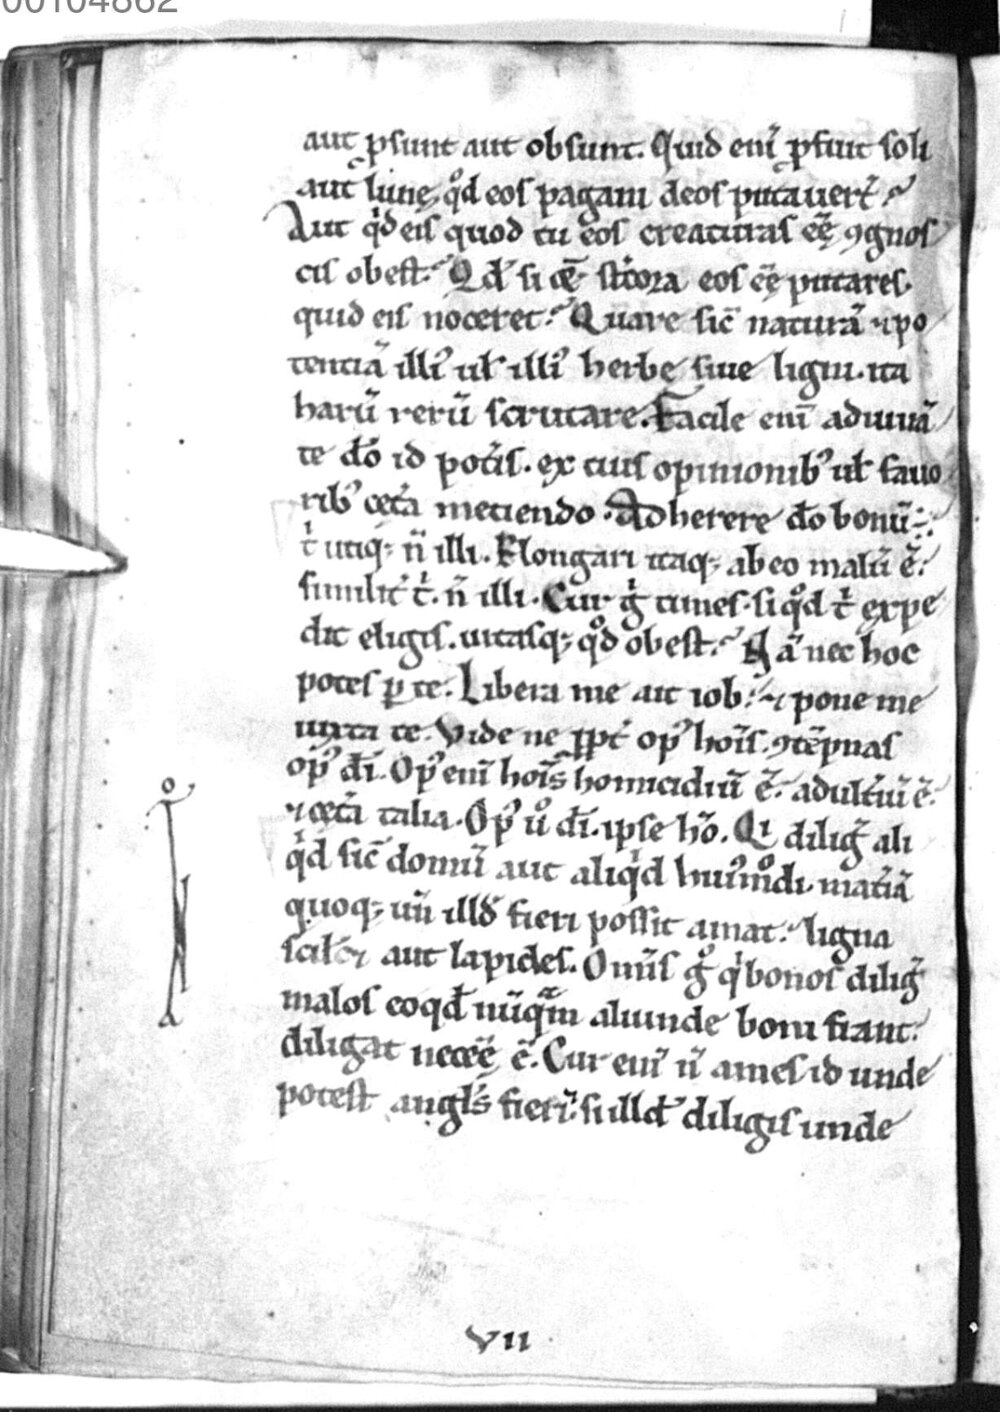 00104862
aut ꝓsunt aut obsunt. Quid eni̅ ꝓfuit soli
aut lune, qͦd eos pagani deos putauer̅t?
Aut qͥd eis quod tu eos creaturas e̅e̜ ꝯgnos
cis obest? Qđ si ce̅ st̅cora eos e̅e̜ putares.
quid eis noceret? Quare sic̅ natura̅ ⁊ po
tentia̅ illiꝰ ul̅ illiꝰ herbe̜ siue ligni. ita
haru̅ reru̅ scrutare. Facile eni̅ adiuua̅
te do̅ id pot̅is. ex tuis opinionibꝰ ul̅ fauo
ribꝰ cet̅a metiendo. Adherere do̅ bonu̅.
tͥ utiqꝫ n̅ illi. Elongari itaqꝫ ab eo malu̅ e̅.
similit̅ tͥ. n̅ illi. Cur gͥ times. si qͦd tͥ expe
dit eligis. uitasqꝫ qͦd obest? Na̅ nec hoc
potes ꝑ te. Libera me ait iob. ⁊ pone me
iuxta te. Vide ne ꝓpt̅ opꝰ hoi̅s. ꝯte̅pnas
opꝰ di̅. Opꝰ eni̅ hoi̅s homicidiu̅ e̅. adult̅iu̅ e̅.
⁊ cet̅a talia. Opꝰ uͦ di̅. ipse ho̅. Qi dilig̅ ali
qͥd sic̅ domu̅ aut aliqͥd huiꝰmͦdi. mat̅ia̅
quoqꝫ un̅ illđ fieri possit amat. ligna
scil̅ aut lapides. Om̅is gͦ qͥ bonos dilig̅
malos eo qđ nu̅qᵃm aliunde boni fiant.
diligat nece̅e̜ e̅. Cur eni̅ n̅ ames id unde
potest angl̅s fieri. si illđ diligis unde
VII